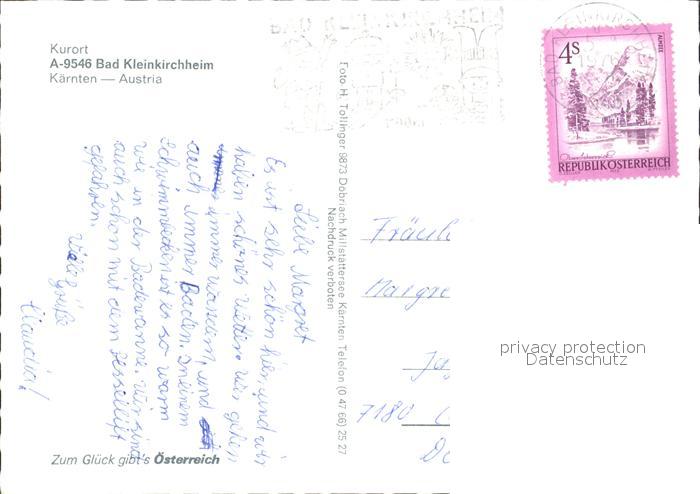 Kurort
A-9546 Bad Kleinkirchheim
Kärnten — Austria
Liebe Margret
Es ist sehr schön hier, und wir
haben schönes Wetter. Wir gehen
immer wandern, und
auch immer Baden. In einem
Schwimmbad ist es so warm
wie in der Badewanne. Wir sind
auch schon mit dem Sessellift
gefahren.
Viele Grüße
Claudia!
Zum Glück gibt's Österreich
Foto-H. Tollinger 9873 Döbriach Millstättersee Kärnten Telefon (0 47 66) 25 27
Nachdruck verboten
4s
ALMSEE
Oberösterreich
REPUBLIK ÖSTERREICH
Fräulei
Margre
7180
privacy protection
Datenschutz